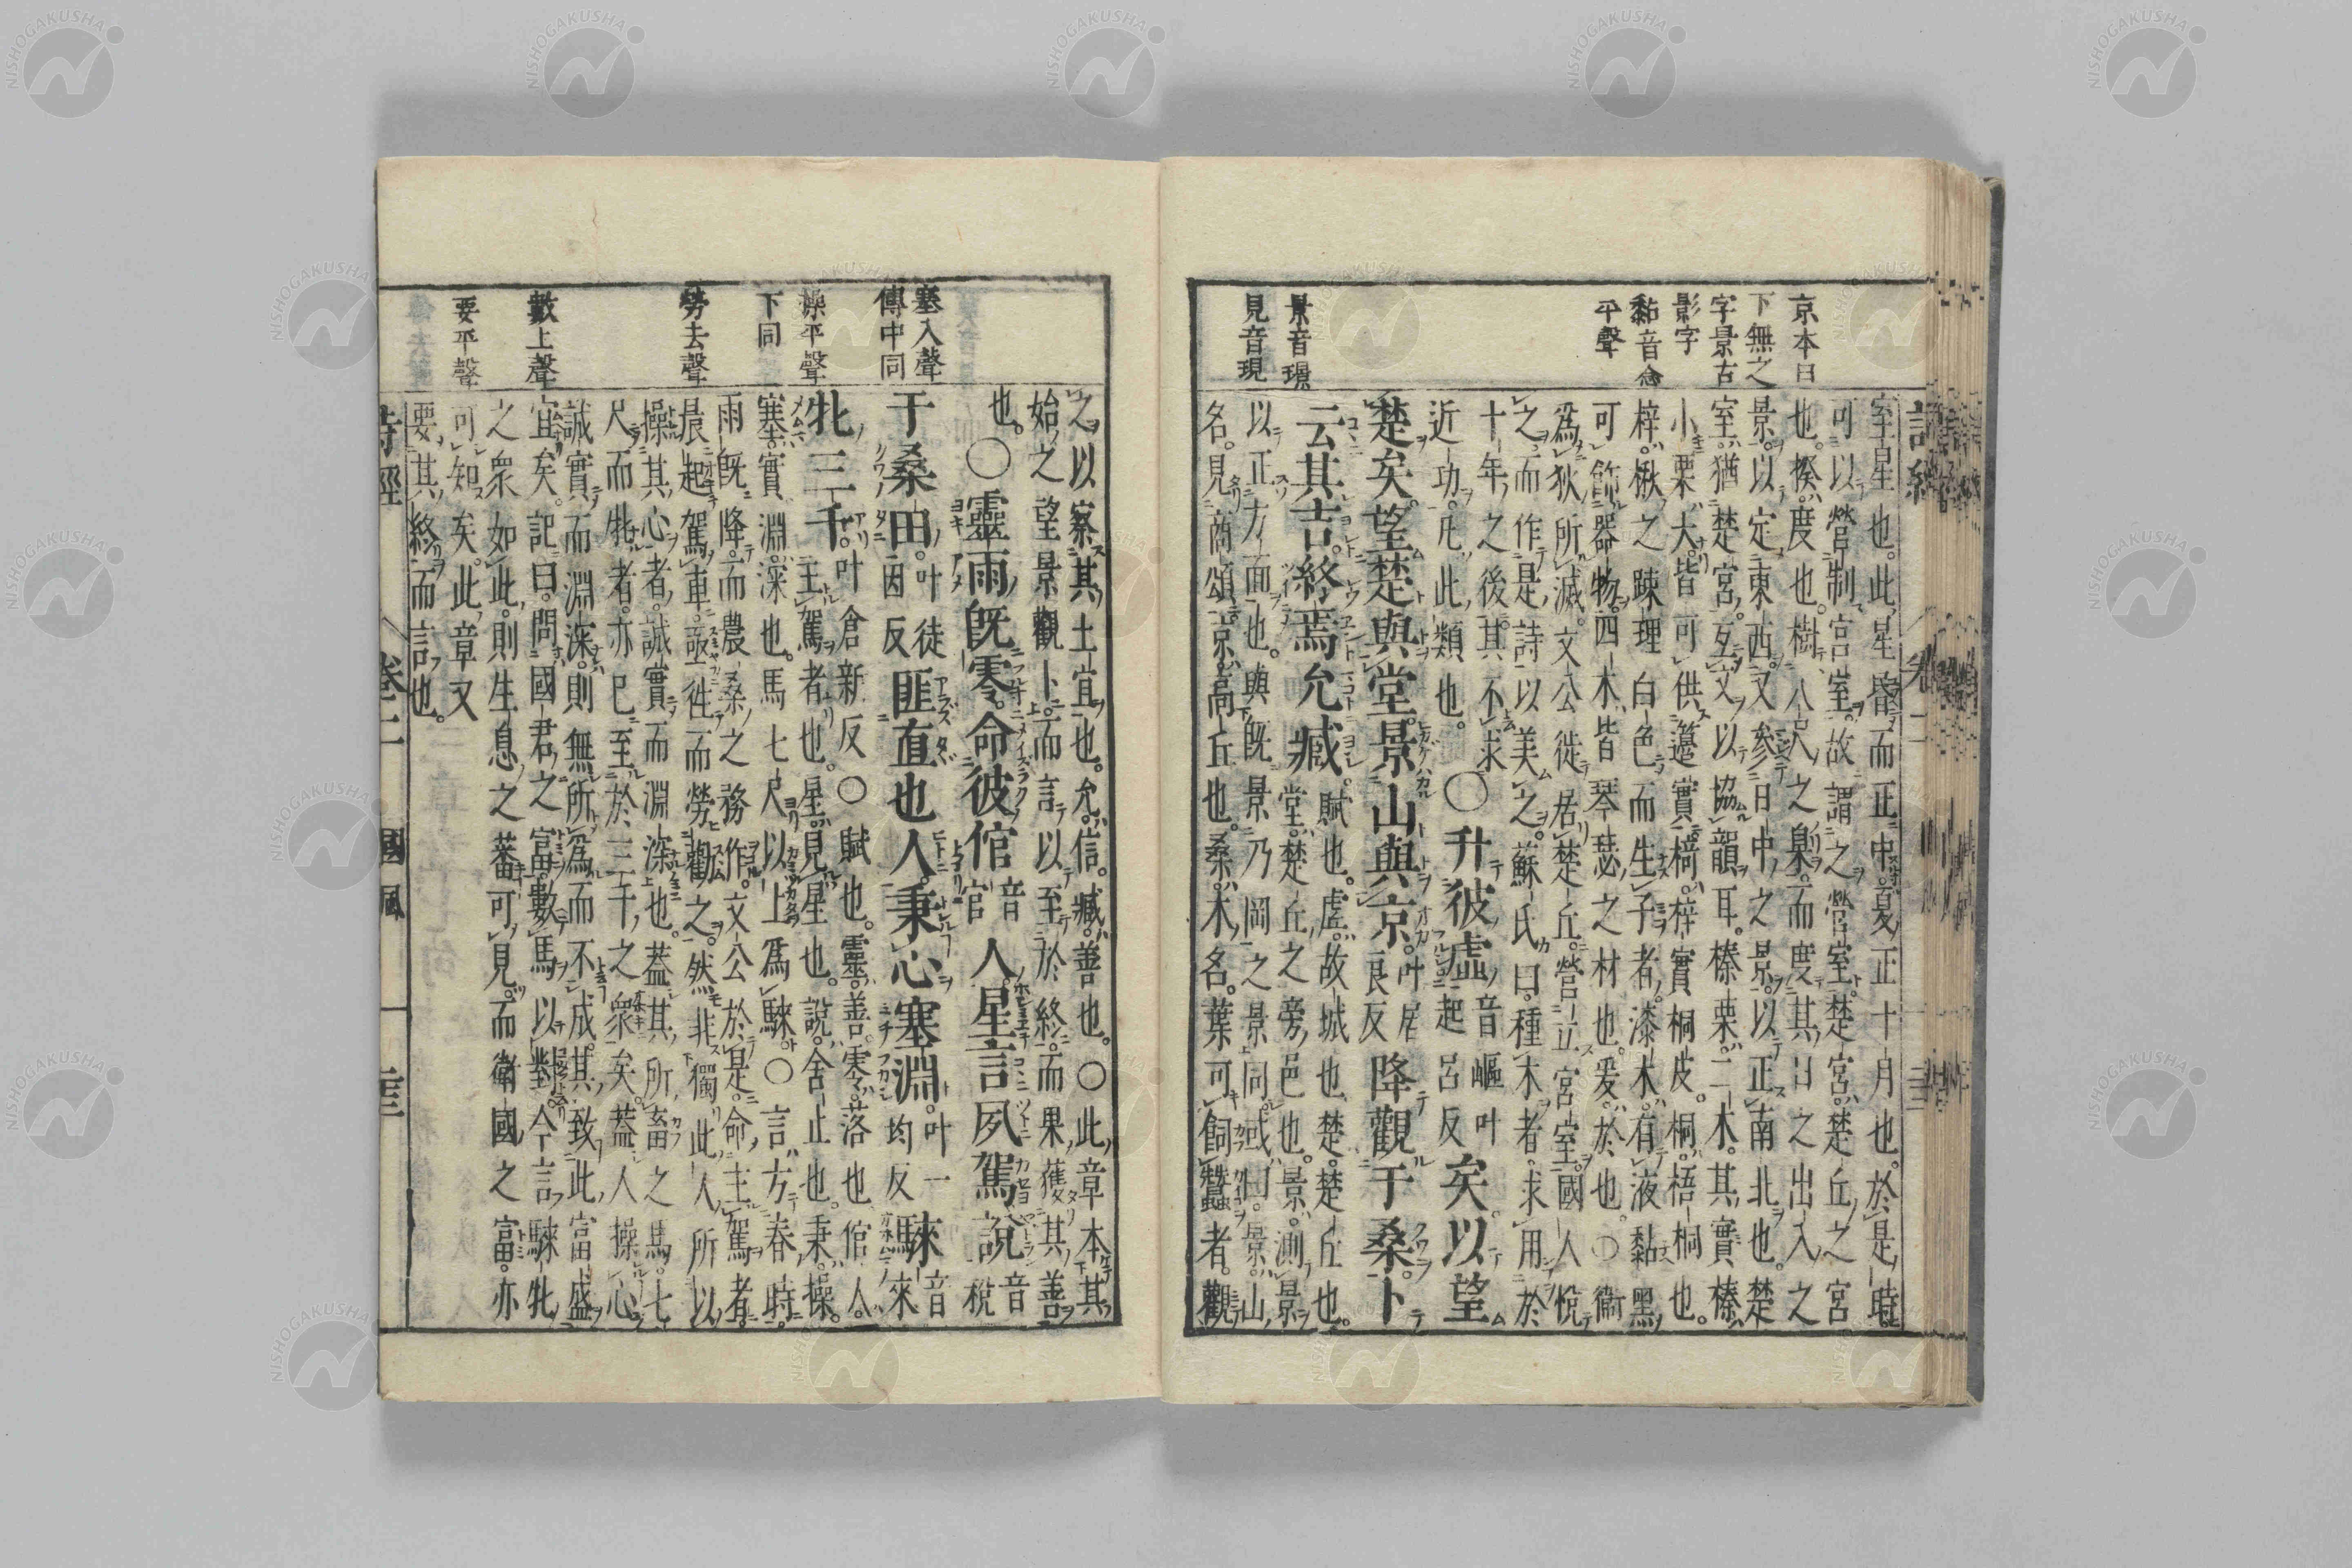 京本日
下無之
字景古
影字
黏音念
平聲
景音璟
見音現
室星也。此星昏而正中。夏正十月也。於是時。
可以營制宮室。故謂之營室。楚宮。楚丘之宮
也。揆。度也。樹八尺之臬。而度其日之出入之
景。以定東西。又參日中之景。以正南北也。楚
室。猶楚宮。互文以協韻耳。榛栗。二木。其實榛
小栗大。皆可供籩實。椅。梓實桐皮。桐。梧桐也。
梓。楸之疎理白色而生子者。漆。木。有液黏黑。
可飾器物。四木皆琴瑟之材也。爰。於也。○衞
爲狄所滅。文公徙居楚丘。營立宮室。國人悅
之。而作是詩以美之。蘇氏曰。種木者。求用於
十年之後。其不求
近功。凡此類也。○升彼虛音嶇叶起呂反矣。以望
楚矣。望楚與堂。景山與京。叶居良反降觀于桑。卜
云其吉。終焉允臧。賦也。虛。故城也。楚。楚丘也。
堂。楚丘之旁邑也。景。測景
以正方面也。與既景乃岡之景同。或曰。景。山
名。見商頌。京。高丘也。桑。木名。葉可飼蠶者。觀
詩經 卷二
塞入聲
傳中同
操平聲
下同
勞去聲
數上聲
要平聲
之以察其土宜也。允。信。臧。善也。○此章本其
始之望景觀卜。而言以至於終。而果獲其善
也。○靈雨既零。命彼倌音官人。星言夙駕。說音稅
于桑田。叶徒因反匪直也人。秉心塞淵。叶一均反騋音來
牝三千。叶倉新反○賦也。靈。善。零。落也。倌人。
主駕者也。星。見星也。說。舍止也。秉。操。
塞。實。淵。深也。馬七尺以上爲騋。○言方春時
雨既降。而農桑之務作。文公於是。命主駕者。
晨起駕車。亟徃而勞勸之。然非獨此人所以
操其心者。誠實而淵深也。蓋其所畜之馬。七
尺而牝者。亦已至於三千之衆矣。蓋人操心
誠實。而淵深。則無所爲而不成。其致此富盛
宜矣。記曰。問國君之富。數馬以對。今言騋牝
之衆如此。則生息之蕃可見。而衞國之富。亦
可知矣。此章又
要其終而言也。
詩經 卷二 國風 二三